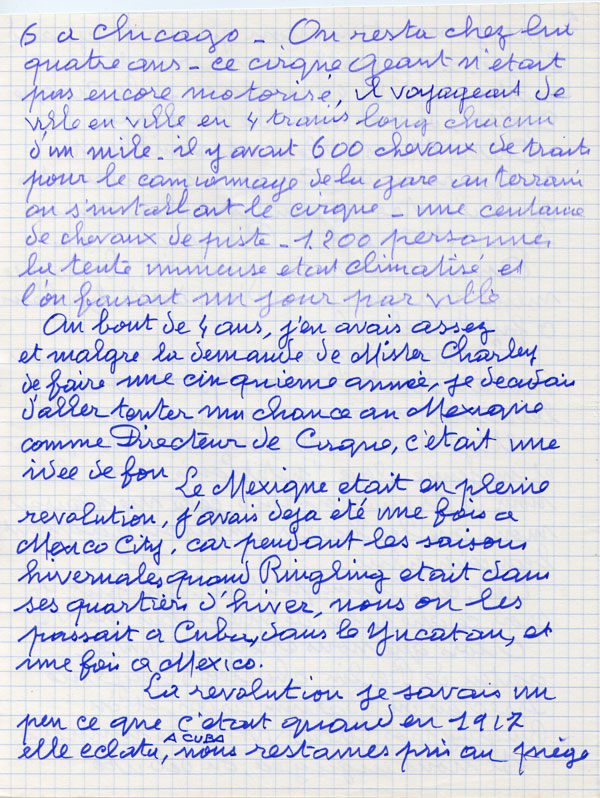 6 a Chicago - On resta chez lui
quatre ans - ce cirque Geant n'etait
pas encore motorisé, il voyageait de
ville en ville en 4 trains long chacun
d'un mile - il y avait 600 chevaux de traits
pour le camionnage de la gare au terrain
ou s'installait le cirque - une centaine
de chevaux de piste - 1.200 personnes
la tente immense etait climatisé et
l'on faisait un jour par ville
Au bout de 4 ans, j'en avais assez
et malgre la demande de Mister Charley
de faire une cinquieme année, je decidais
d'aller tenter ma chance au Mexique
comme Directeur de Cirque, c'était une
idee de fou
Le Mexique etait en pleine
revolution, j'avais deja été une fois a
Mexico City, car pendant les saisons
hivernales quand Ringling etait dans
ses quartiers d'hiver, nous on les
passait a Cuba, dans le Yucatan, et
une fois a Mexico.
La revolution je savais un
peu ce que c'etait quand en 1917
elle eclata, A CUBA nous restames pris au piège